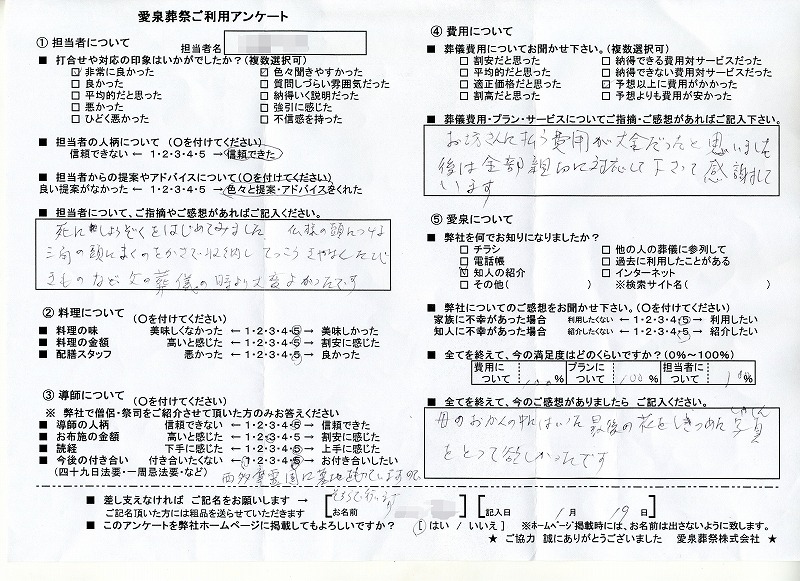 愛泉葬祭ご利用アンケート
① 担当者について
担当者名
■ 打合せや対応の印象はいかがでしたか?(複数選択可)
□ 非常に良かった ☑ 色々聞きやすかった
□ 良かった □ 質問しづらい雰囲気だった
□ 平均的だと思った □ 納得いく説明だった
□ 悪かった □ 強引に感じた
□ ひどく悪かった □ 不信感を持った
■ 担当者の人柄について (○を付けてください)
信頼できない ← 1・2・3・4・5 → 信頼できた
■ 担当者からの提案やアドバイスについて(○を付けてください)
良い提案がなかった ← 1・2・3・4・5 → 色々と提案・アドバイスをくれた
■ 担当者について、ご指摘やご感想があればご記入ください。
死にしょうぞくをはじめてみました 仏様の頭につける
三角の頭にまくのをかさで収納して
きものなど父の葬儀の時より大変よかったです
② 料理について
(○を付けてください)
■ 料理の味 美味しくなかった ← 1・2・3・4・5 → 美味しかった
■ 料理の金額 高いと感じた ← 1・2・3・4・5 → 割安に感じた
■ 配膳スタッフ 悪かった ← 1・2・3・4・5 → 良かった
③ 導師について
(○を付けてください)
※ 弊社で僧侶・祭司をご紹介させて頂いた方のみお答えください
■ 導師の人柄 信頼できない ← 1・2・3・4・5 → 信頼できた
■ お布施の金額 高いと感じた ← 1・2・3・4・5 → 割安に感じた
■ 読経 下手に感じた ← 1・2・3・4・5 → 上手に感じた
■ 今後の付き合い 付き合いたくない ← 1・2・3・4・5 → お付き合いしたい
(四十九日法要・一周忌法要・など)
西多摩霊園に墓地を持っていますので、
そちらで行います
④ 費用について
■ 葬儀費用についてお聞かせ下さい。(複数選択可)
□ 割安だと思った □ 納得できる費用対サービスだった
□ 平均的だと思った □ 納得できない費用対サービスだった
□ 適正価格だと思った ☑ 予想以上に費用がかかった
□ 割高だと思った □ 予想よりも費用が安かった
■ 葬儀費用・プラン・サービスについてご指摘・ご感想があればご記入下さい。
お坊さんに払う費用が大金だったと思いました
後は全部親切に対応して下さって感謝して
います
⑤ 愛泉について
■ 弊社を何でお知りになりましたか?
□ チラシ □ 他の人の葬儀に参列して
□ 電話帳 □ 過去に利用したことがある
☑ 知人の紹介 □ インターネット
□ その他( ) ※検索サイト名( )
■ 弊社についてのご感想をお聞かせ下さい。(○を付けてください)
家族に不幸があった場合 利用したくない ← 1・2・3・4・5 → 利用したい
知人に不幸があった場合 紹介したくない ← 1・2・3・4・5 → 紹介したい
■ 全てを終えて、今の満足度はどのくらいですか?(0%~100%)
費用について 100% プランについて 100% 担当者について %
■ 全てを終えて、今のご感想がありましたら ご記入ください。
母のおかんの中にはいった最後の花をしきつめた写真
しゃしん
をとって欲しかったです
■ 差し支えなければ ご記名をお願いします →
ご記名頂いた方には粗品を送らせていただきます
[お名前 ] [記入日 1月 19日]
■ このアンケートを弊社ホームページに掲載してもよろしいですか? [はい / いいえ] ※ホームページ掲載時には、お名前は出さないように致します。
★ ご協力 誠にありがとうございました 愛泉葬祭株式会社 ★